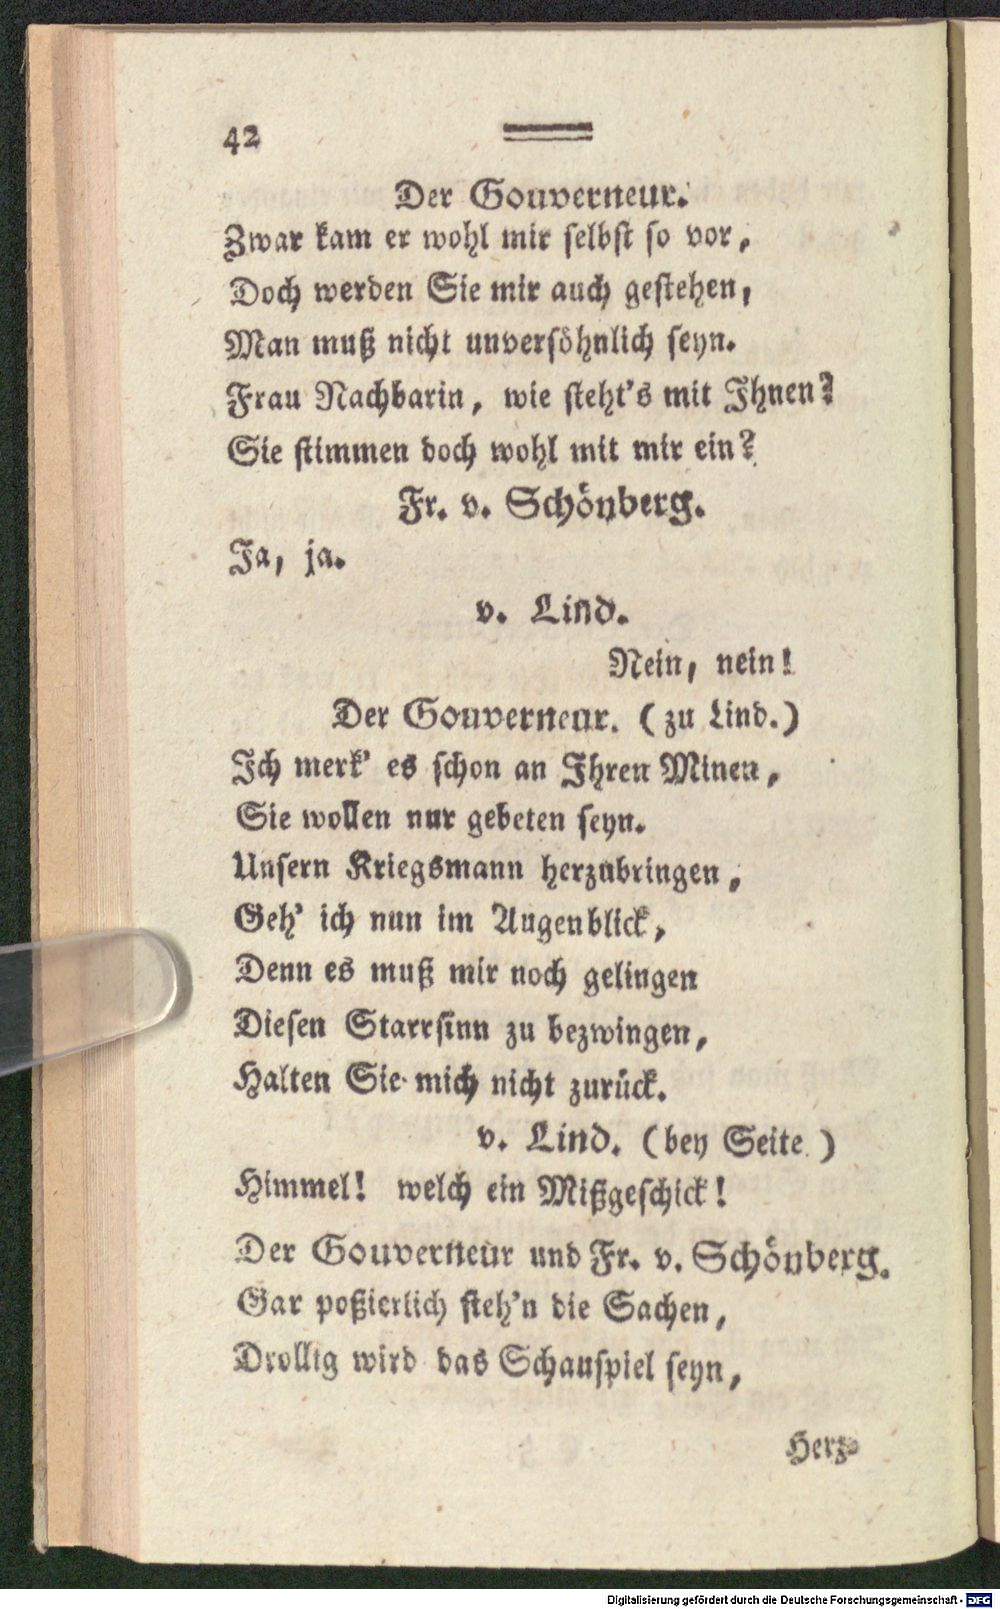 42
Der Gouverneur.
Zwar kam er wohl mir selbst so vor,
Doch werden Sie mir auch gestehen,
Man muß nicht unversöhnlich seyn.
Frau Nachbarin, wie steht's mit Ihnen?
Sie stimmen doch wohl mit mir ein?
Fr. v. Schönberg.
Ja, ja.
v. Lind.
Nein, nein!
Der Gouverneur. (zu Lind.)
Ich merk' es schon an Ihren Minen,
Sie wollen nur gebeten seyn.
Unsern Kriegsmann herzubringen,
Geh' ich nun im Augenblick,
Denn es muß mir noch gelingen
Diesen Starrsinn zu bezwingen,
Halten Sie mich nicht zurück.
v. Lind. (bey Seite.)
Himmel! welch ein Mißgeschick!
Der Gouverneur und Fr. v. Schönberg.
Gar poßierlich steh'n die Sachen,
Drollig wird das Schauspiel seyn,
Herz-
Digitalisierung gefördert durch die Deutsche Forschungsgemeinschaft - DFG